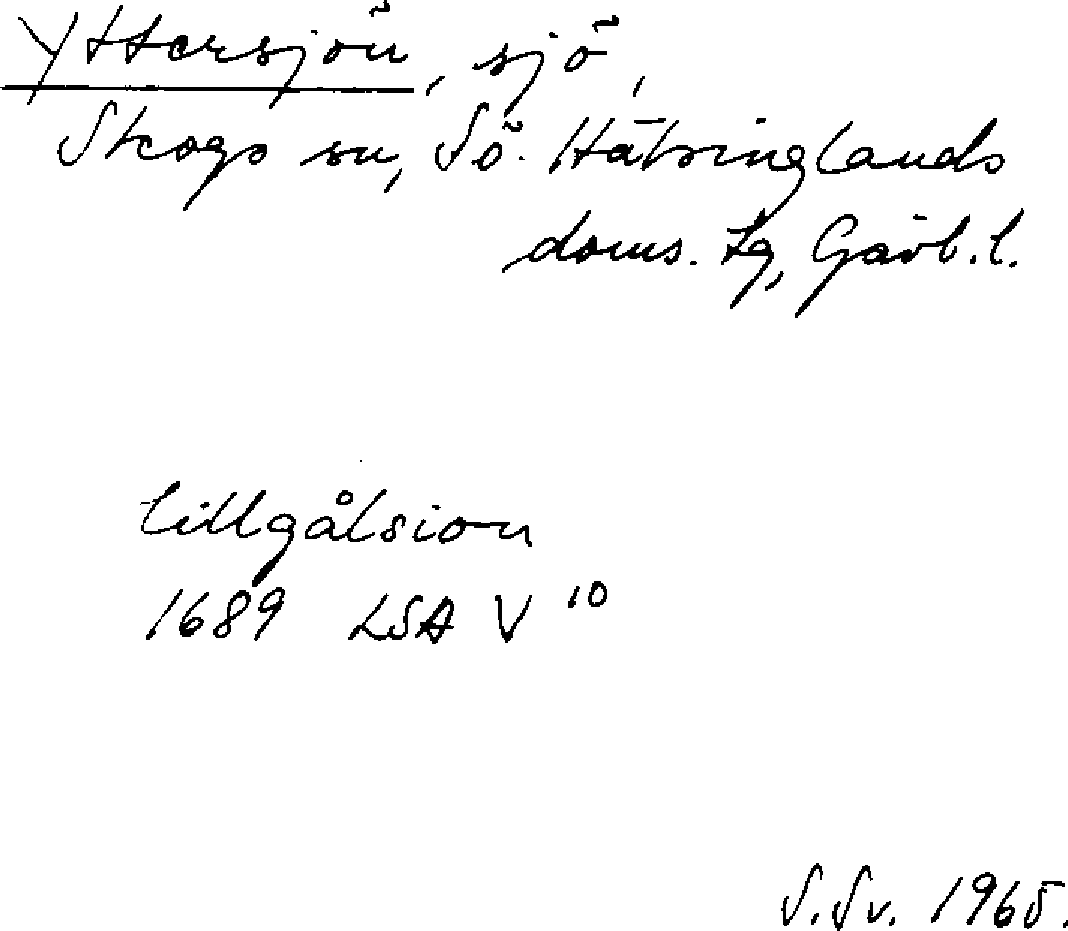 Yttersjön, sjö,
Skogs sn, Sö. Hälsinglands
doms. tg, Gävleb. l.
lillgålsion
1689 LSA V 10
S. Sv. 1965.